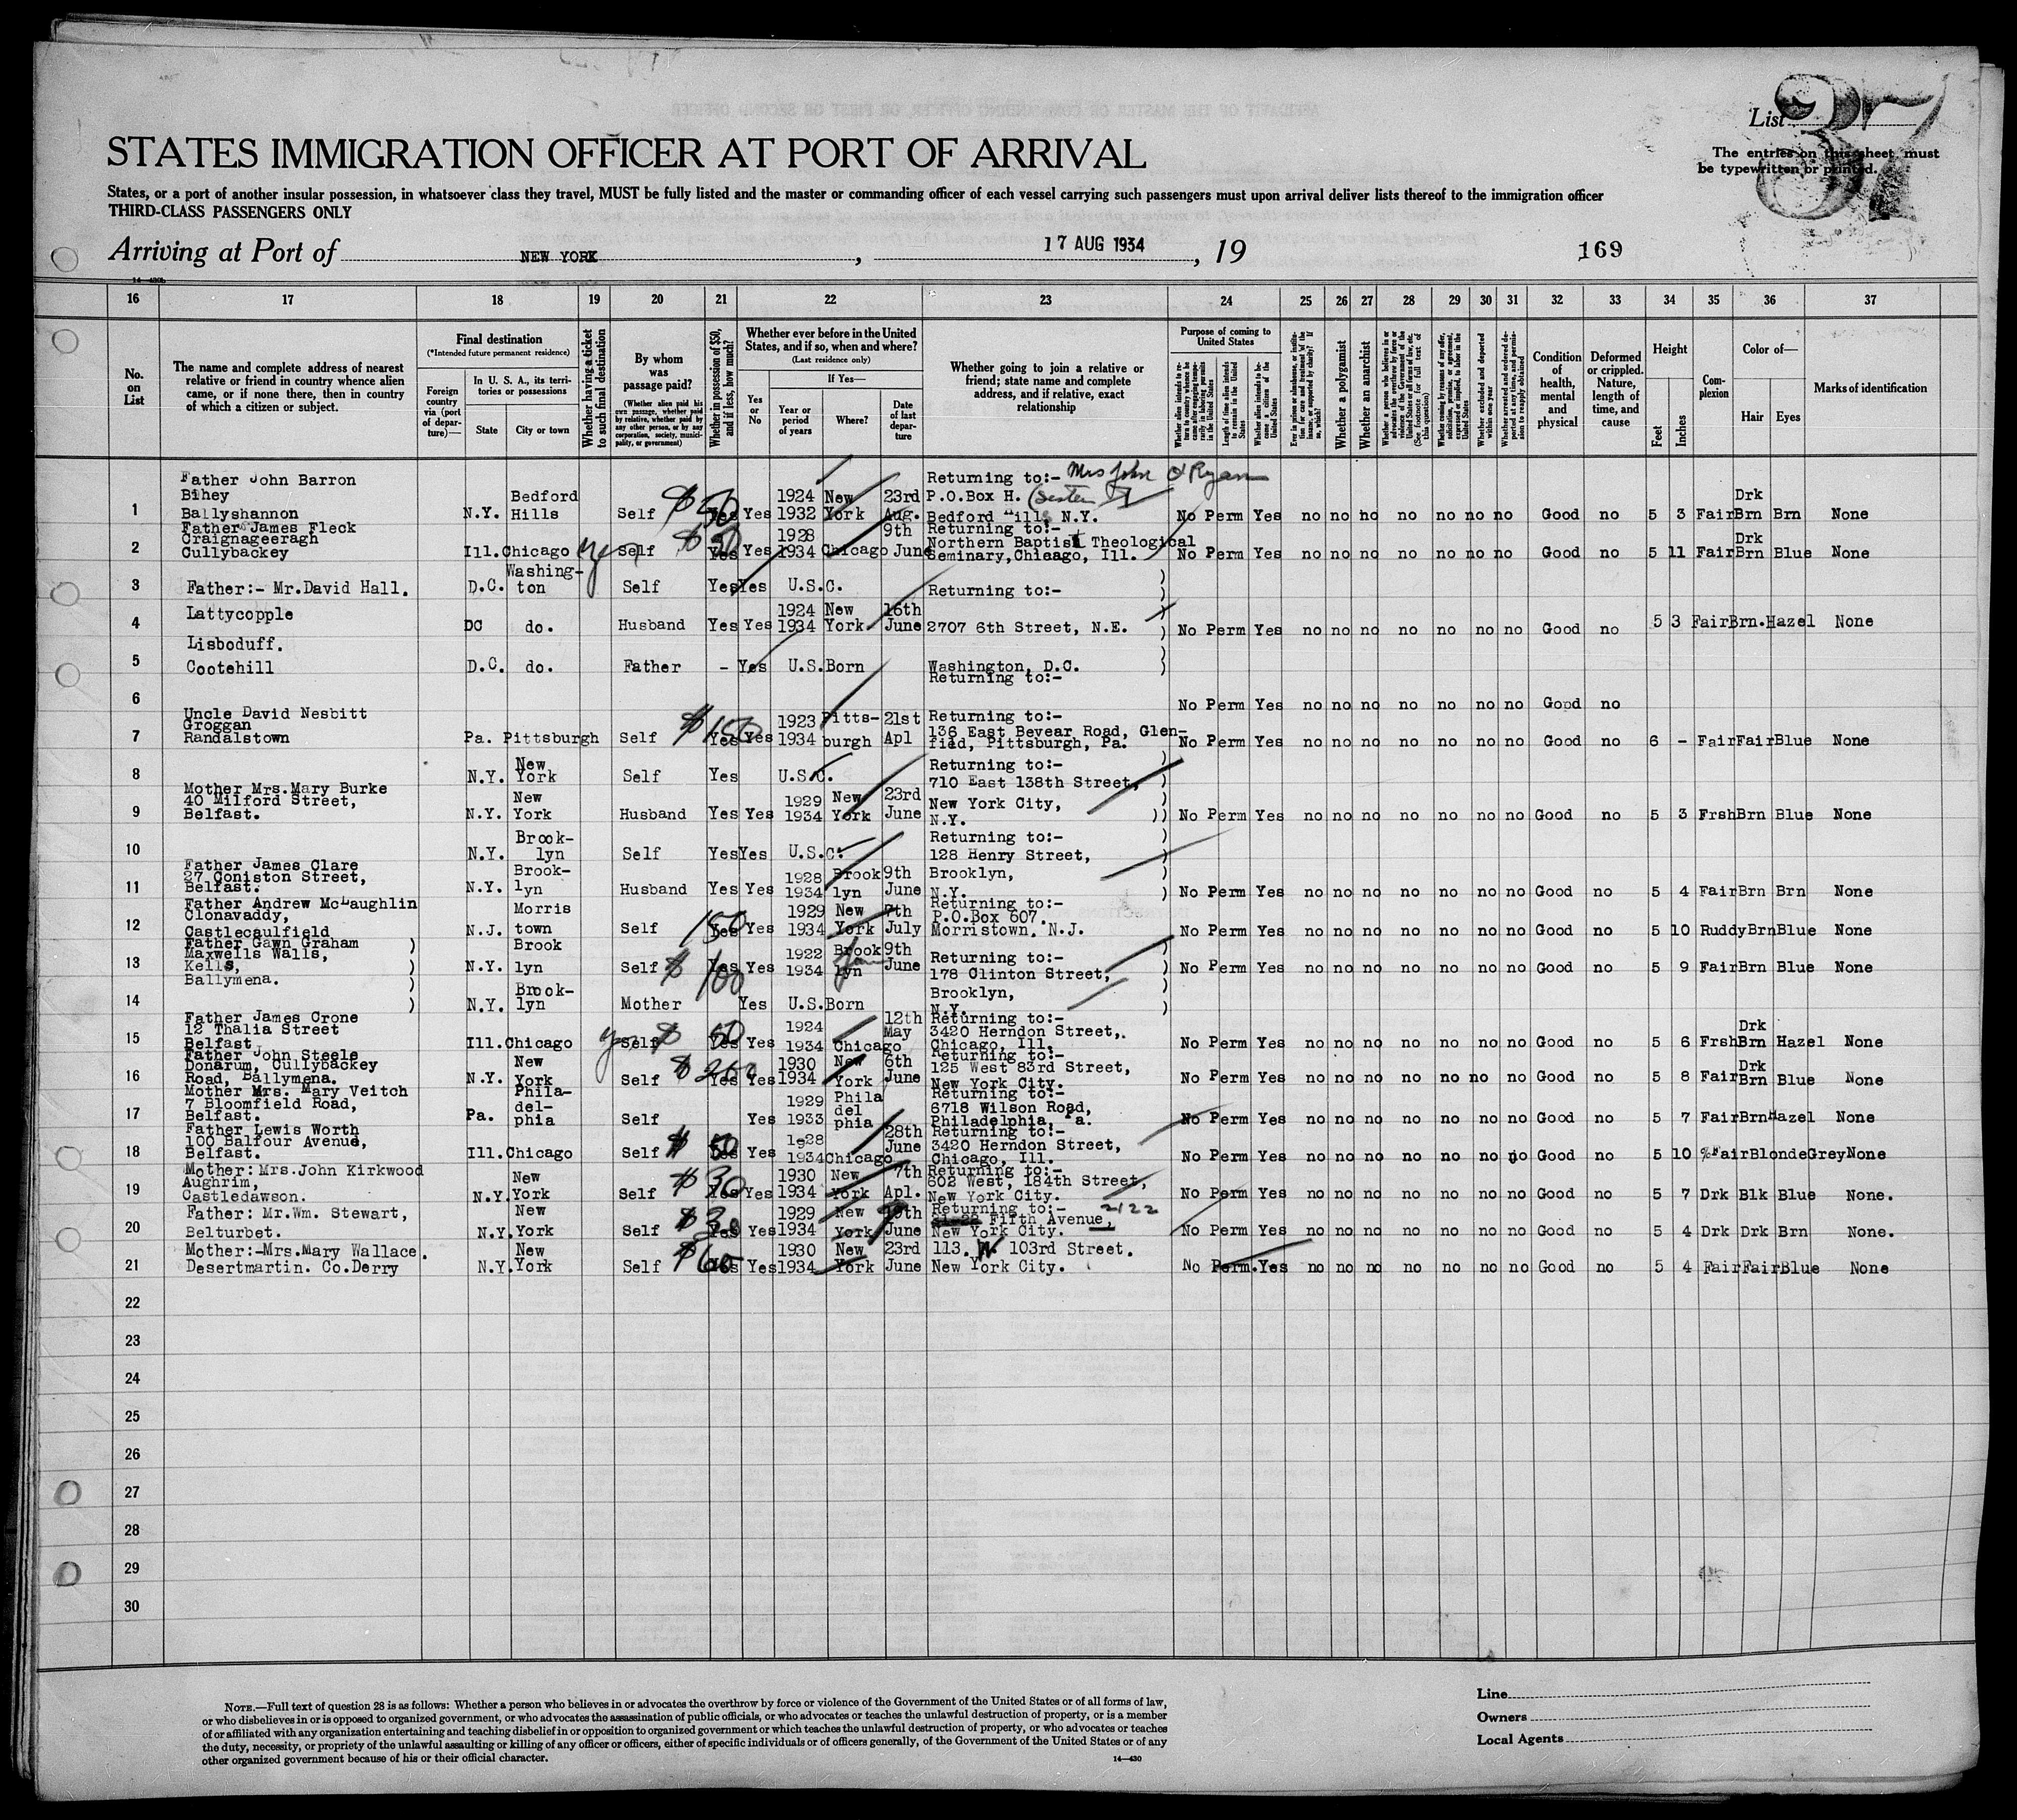 List 37
The entries on this sheet must
be typewritten or printed.
STATES IMMIGRATION OFFICER AT PORT OF ARRIVAL
States, or a port of another insular possession, in whatsoever class they travel, MUST be fully listed and the master or commanding officer of each vessel carrying such passengers must upon arrival deliver lists thereof to the immigration officer
THIRD-CLASS PASSENGERS ONLY
Arriving at Port of NEW YORK, 17 AUG 1934, 19 169
16 17 18 19 20 21 22 23 24 25 26 27 28 29 30 31 32 33 34 35 36 37
No. on List
The name and complete address of nearest relative or friend in country whence alien came, or if none there, then in country of which a citizen or subject.
Final destination
(*Intended future permanent residence)
Foreign country via (port of departure)—
In U. S. A., its territories or possessions
State City or town
Whether having a ticket to such final destination
By whom was passage paid?
(Whether alien paid his own passage, whether paid by relative, whether paid by any other person, or by any corporation, society, municipality, or government)
Whether in possession of $50, and if less, how much?
Whether ever before in the United States, and if so, when and where?
(Last residence only)
Yes or No
If Yes—
Year or period of years
Where?
Date of last departure
Whether going to join a relative or friend; state name and complete address, and if relative, exact relationship
Purpose of coming to United States
Length of time alien intends to remain in the United States
Whether alien intends to become a citizen of the United States
Whether a polygamist
Whether an anarchist
Whether excluded and deported within one year
Condition of health, mental and physical
Deformed or crippled. Nature, length of time, and cause
Height
Feet Inches
Complexion
Color of—
Hair Eyes
Marks of identification
1 Father John Barron Bihey Ballyshannon N.Y. Bedford Hills Self $50 Yes Yes 1924 1932 New York 23rd Aug. Returning to:- Mrs John O'Ryan P.O.Box H. (Sister) Bedford Hills, N.Y. No Perm Yes no no no no no no no Good no 5 3 Fair Drk Brn Brn None
2 Father James Fleck Craignageeragh Cullybackey Ill. Chicago yes Self $50 Yes Yes 1928 1934 Chicago 9th June Returning to:- Northern Baptist Theological Seminary, Chicago, Ill. No Perm Yes no no no no no no no Good no 5 11 Fair Drk Brn Blue None
3 Father:- Mr.David Hall. D.C. Washington Self Yes Yes U.S.C. Returning to:- )
4 Lattycopple DC do. Husband Yes Yes 1924 1934 New York 16th June 2707 6th Street, N.E. ) No Perm Yes no no no no no no no Good no 5 3 Fair Brn. Hazel None
Lisboduff.
5 Cootehill D.C. do. Father - Yes U.S.Born Washington, D.C. )
6 Returning to:- No Perm Yes no no no no no no no Good no
7 Uncle David Nesbitt Groggan Randalstown Pa. Pittsburgh Self $150 Yes Yes 1923 1934 Pittsburgh 21st Apl Returning to:- 136 East Bevear Road, Glenfield, Pittsburgh, Pa. No Perm Yes no no no no no no no Good no 6 - Fair Fair Blue None
8 N.Y. New York Self Yes U.S.C. Returning to:- 710 East 138th Street, )
9 Mother Mrs.Mary Burke 40 Milford Street, Belfast. N.Y. New York Husband Yes Yes 1929 1934 New York 23rd June New York City, N.Y. )) No Perm Yes no no no no no no no Good no 5 3 Frsh Brn Blue None
10 N.Y. Brooklyn Self Yes Yes U.S.C. Returning to:- 128 Henry Street, )
11 Father James Clare 27 Coniston Street, Belfast. N.Y. Brooklyn Husband Yes Yes 1928 1934 Brooklyn 9th June Brooklyn, N.Y. ) No Perm Yes no no no no no no no Good no 5 4 Fair Brn Brn None
12 Father Andrew McLaughlin Clonavaddy, Castlecaulfield N.J. Morristown Self 150 Yes Yes 1929 1934 New York 7th July Returning to:- P.O.Box 607. Morristown. N.J. No Perm Yes no no no no no no no Good no 5 10 Ruddy Brn Blue None
13 Father Gawn Graham ) Maxwells Walls, Kells, ) Ballymena. ) N.Y. Brooklyn Self $100 Yes Yes 1922 1934 Brooklyn 9th June Returning to:- 178 Clinton Street, ) No Perm Yes no no no no no no no Good no 5 9 Fair Brn Blue None
14 ) N.Y. Brooklyn Mother Yes U.S.Born Brooklyn, N.Y. )
15 Father James Crone 12 Thalia Street Belfast Ill. Chicago yes Self $50 Yes Yes 1924 1934 Chicago 12th May Returning to:- 3420 Herndon Street, Chicago, Ill. No Perm Yes no no no no no no no Good no 5 6 Frsh Drk Brn Hazel None
16 Father John Steele Donarum, Cullybackey Road, Ballymena. N.Y. New York Self $200 Yes Yes 1930 1934 New York 6th June Returning to:- 125 West 83rd Street, New York City. No Perm Yes no no no no no no no Good no 5 8 Fair Drk Brn Blue None
17 Mother Mrs. Mary Veitch 7 Bloomfield Road, Belfast. Pa. Philadelphia Self Yes 1929 1933 Philadelphia Returning to:- 6718 Wilson Road, Philadelphia, Pa. No Perm Yes no no no no no no no Good no 5 7 Fair Brn Hazel None
18 Father Lewis Worth 100 Balfour Avenue, Belfast. Ill. Chicago Self $50 Yes Yes 1928 1934 Chicago 28th June Returning to:- 3420 Herndon Street, Chicago, Ill. No Perm Yes no no no no no no no Good no 5 10 Fair Blonde Grey None
19 Mother: Mrs.John Kirkwood Aughrim, Castledawson. N.Y. New York Self $30 Yes Yes 1930 1934 New York 7th Apl. Returning to:- 602 West, 184th Street, New York City. No Perm Yes no no no no no no no Good no 5 7 Drk Blk Blue None.
20 Father: Mr.Wm. Stewart, Belturbet. N.Y. New York Self Yes Yes 1929 1934 New York June Returning to:- 2122 Fifth Avenue, New York City. No Perm Yes no no no no no no no Good no 5 4 Drk Drk Brn None.
21 Mother:-Mrs.Mary Wallace. Desertmartin. Co.Derry N.Y. New York Self $60 Yes Yes 1930 1934 New York 23rd June 113. W. 103rd Street. New York City. No Perm. Yes no no no no no no no Good no 5 4 Fair Fair Blue None
22
23
24
25
26
27
28
29
30
NOTE.—Full text of question 28 is as follows: Whether a person who believes in or advocates the overthrow by force or violence of the Government of the United States or of all forms of law,
or who disbelieves in or is opposed to organized government, or who advocates the assassination of public officials, or who advocates or teaches the unlawful destruction of property, or is a member
of or affiliated with any organization entertaining and teaching disbelief in or opposition to organized government or which teaches the unlawful destruction of property, or who advocates or teaches
the duty, necessity, or propriety of the unlawful assaulting or killing of any officer or officers, either of specific individuals or of officers generally, of the Government of the United States or of any
other organized government because of his or their official character.
14—430
Line
Owners
Local Agents